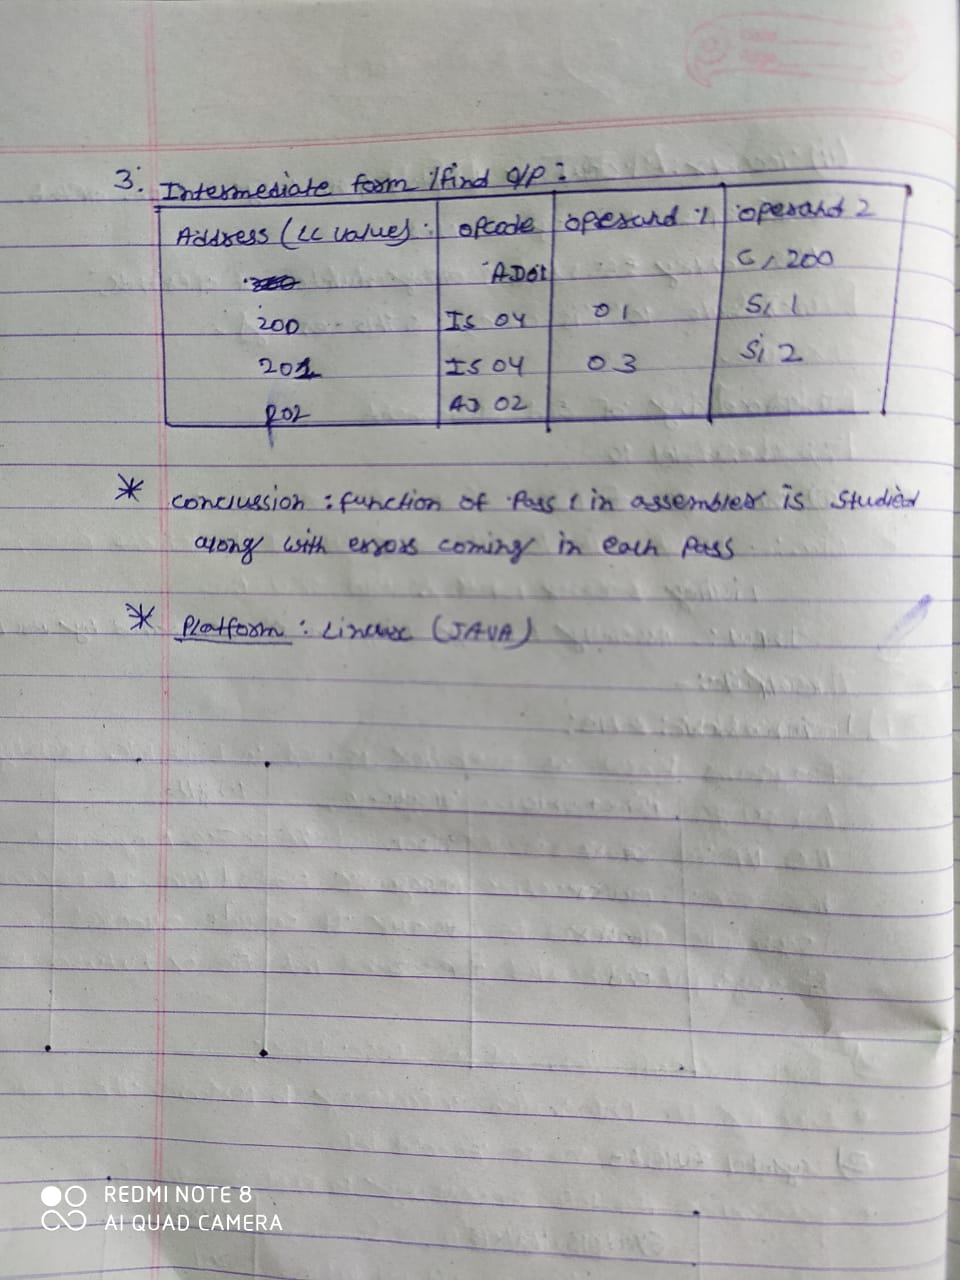 3. Intermediate form / find O/P :
Address (LC values) : opcode operand 1 operand 2
AD01 C, 200
200 IS 04 01 S, 1
201 IS 04 03 S, 2
202 AD 02
* Conclussion : function of Pass 1 in assembler is studied
along with errors coming in each Pass
* Platform : Linux (JAVA)
REDMI NOTE 8
AI QUAD CAMERA